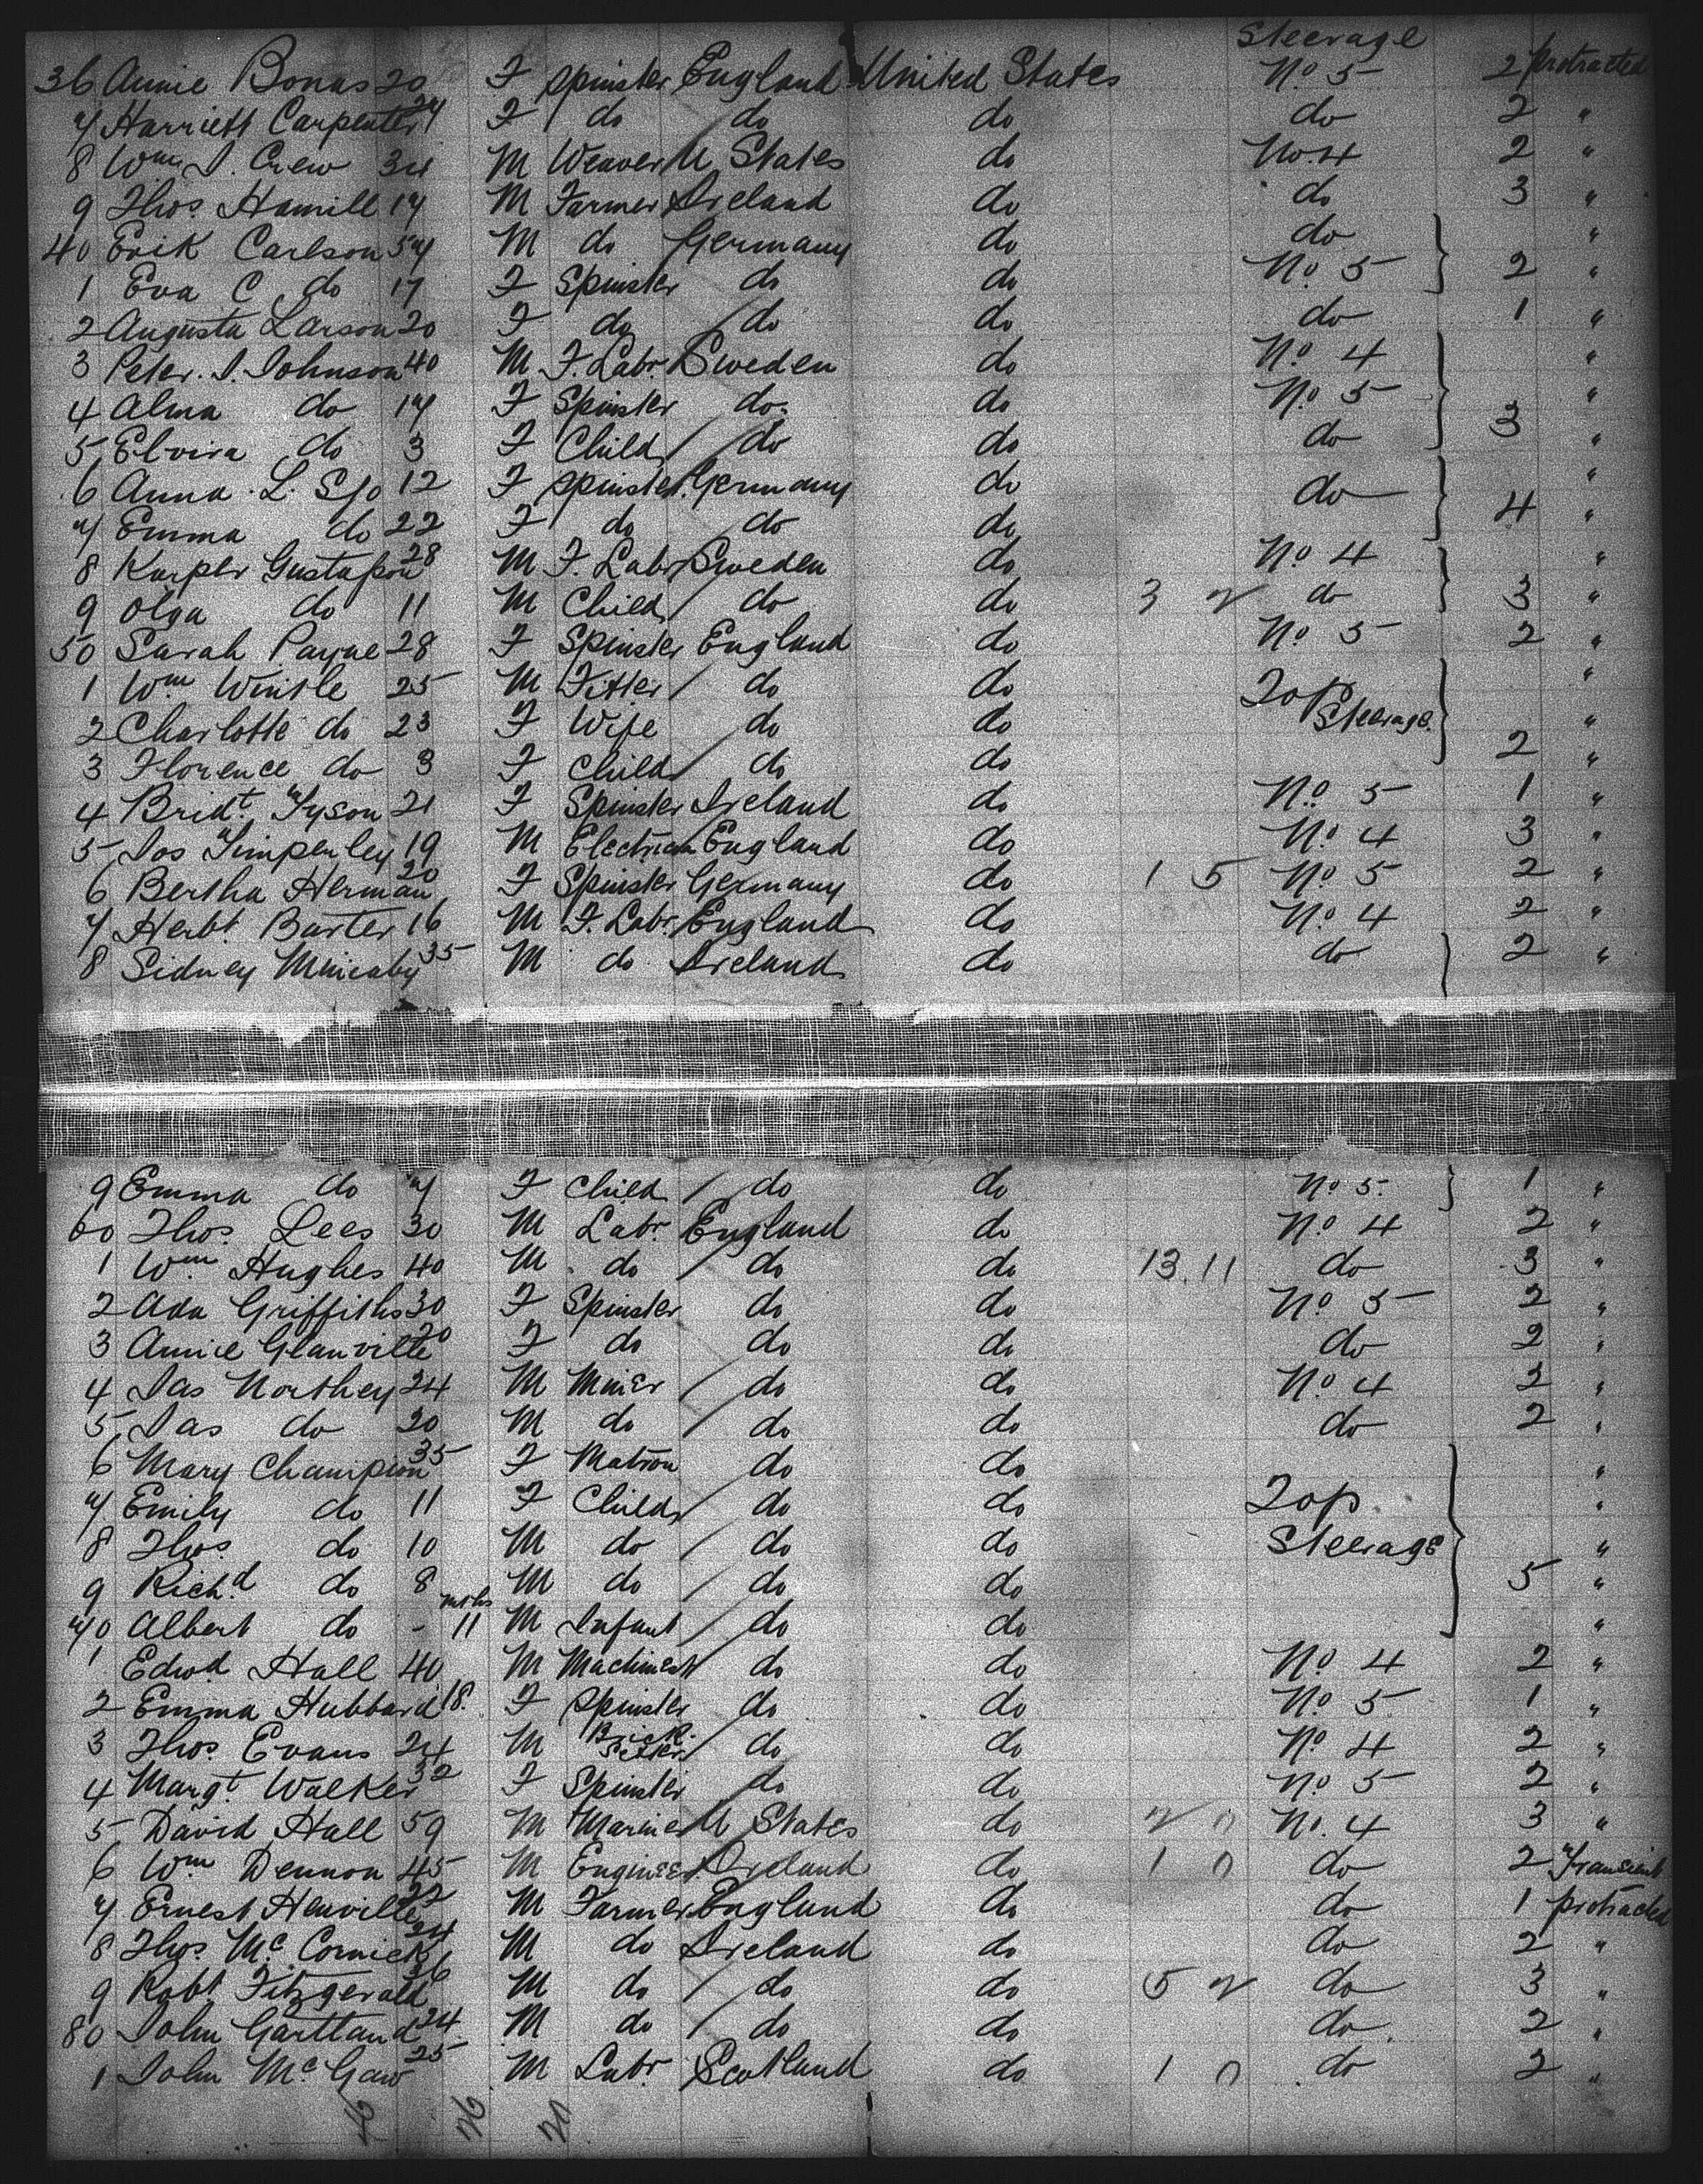 Steerage
36 Annie Bonas 20 F Spinster England United States No 5 2 Protracted
7 Harriett Carpenter 24 F do do do do 2 "
8 Wm J. Crew 34 M Weaver U States do No. 4 2 "
9 Thos Hamill 17 M Farmer Ireland do do 3 "
40 Erik Carlson 57 M do Germany do do "
1 Eva C do 17 F Spinster do do No 5 2 "
2 Augusta Larson 20 F do do do do 1 "
3 Peter. J. Johnson 40 M F. Labr. Sweden do No 4 "
4 Alma do 17 F Spinster do do No. 5 "
5 Elvira do 3 F Child do do do 3 "
6 Anna L. Sjo 12 F Spinster Germany do do "
7 Emma do 22 F do do do 4 "
8 Karper Gustafson 28 M F. Labr Sweden do No 4 "
9 Olga do 11 M Child do do 3 2 do 3 "
50 Sarah Payne 28 F Spinster England do No 5 2 "
1 Wm Wintle 25 M Fitter do do Top "
2 Charlotte do 23 F Wife do do Steerage. "
3 Florence do 3 F Child do do 2 "
4 Bridt. Tyson 21 F Spinster Ireland do No. 5 1 "
5 Jos Timperley 19 M Electrician England do No. 4 3 "
6 Bertha Herman 20 F Spinster Germany do 1 5 No. 5 2 "
7 Herbt. Barter 16 M F. Labr. England do No. 4 2 "
8 Sidney 35 M do Ireland do do 2 "
9 Emma do 7 F Child do do No 5. 1 "
60 Thos. Lees 30 M Labr. England do No. 4 2 "
1 Wm Hughes 40 M do do do 13.11 do 3 "
2 Ada Griffiths 30 F Spinster do do No. 5 2 "
3 Annie Glanville 20 F do do do do 2 "
4 Jas Northey 24 M Miner do do No. 4 2 "
5 Jas do 20 M do do do do 2 "
6 Mary Champion 35 F Matron do do "
7 Emily do 11 F Child do do Top "
8 Thos. do 10 M do do do Steerage "
9 Richd do 8 M do do do 5 "
70 Albert do - 11 mths M Infant do do "
1 Edwd Hall 40 M Machinest do do No. 4 2 "
2 Emma Hubbard 18. F Spinster do do No. 5 1 "
3 Thos. Evans 24 M Brick Setter do do No. 4 2 "
4 Margt. Walker 32 F Spinster do do No. 5 2 "
5 David Hall 59 M Mariner U States do 2 0 No. 4 3 "
6 Wm Dennon 45 M Engineer Ireland do 1 0 do 2 Transient
7 Ernest Henville 22 M Farmer England do do 1 protracted
8 Thos. Mc Cornick 24 M do Ireland do do 2 "
9 Robt. Fitzgerald 36 M do do do 5 2 do 3 "
80 John Gartland 24 M do do do do. 2 "
1 John Mc Gaw 25 M Labr. Scotland do 1 0 do 2 "